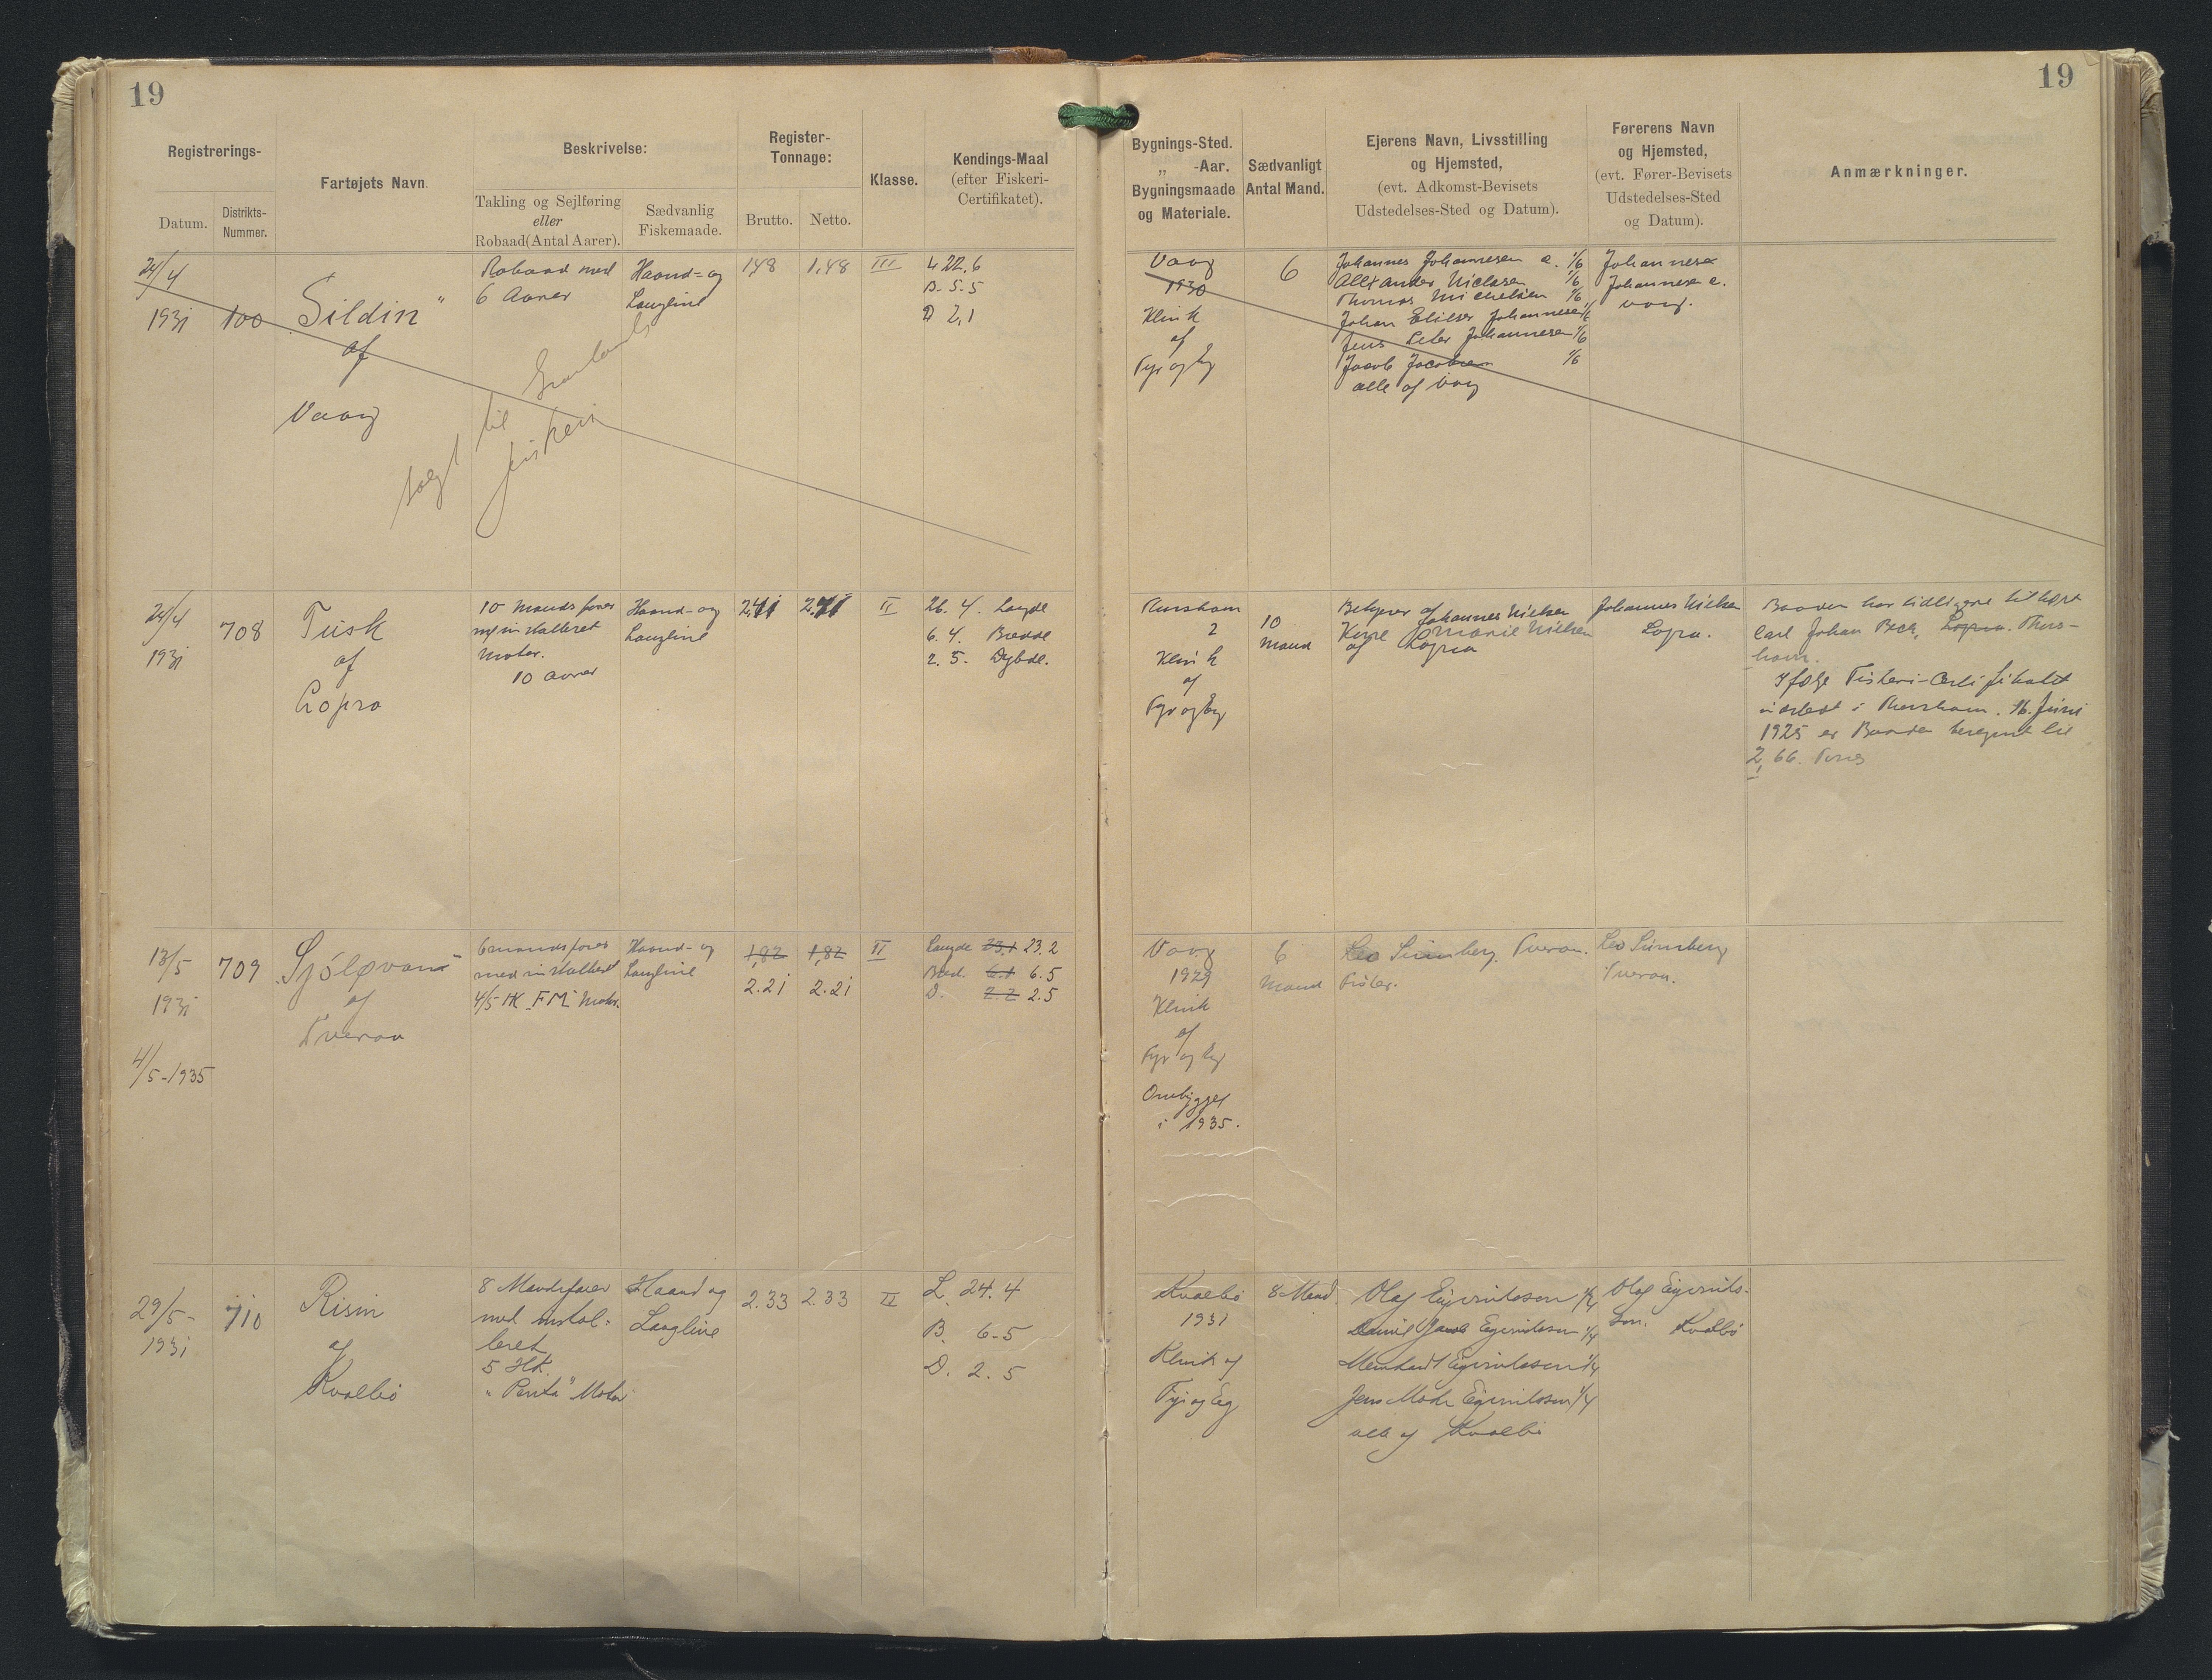 19
19
Registrerings-
Datum.
Distrikts-
Nummer.
Fartøjets Navn.
Beskrivelse:
Takling og Sejlføring
eller
Robaad (Antal Aarer).
Sædvanlig
Fiskemaade.
Register-
Tonnage:
Brutto.
Netto.
Klasse.
Kendings-Maal
(efter Fiskeri-
Certifikatet).
Bygnings-Sted.
„ -Aar.
Bygningsmaade
og Materiale.
Sædvanligt
Antal Mand.
Ejerens Navn, Livsstilling
og Hjemsted,
(evt. Adkomst-Bevisets
Udstedelses-Sted og Datum).
Førerens Navn
og Hjemsted,
(evt. Fører-Bevisets
Udstedelses-Sted
og Datum).
Anmærkninger.
24/4
1931
100
Sildin"
af
Vaag
Robaad med
6 Aarer
Haand- og
Langline
solgt til Grønlands
fiskeri
1,48
1,48
III
L 22.6
B. 5.5
D 2,1
Vaag
1930
Klink
af
Fyr og Eg
6
Johannes Johannesen e. 1/6
Alexander Niclasen 1/6
Thomas Michelsen 1/6
Johan Elieser Johannesen 1/6
Jens Peter Johannesen 1/6
Jacob Jacobsen 1/6
alle af Vaag
Johannes
Johannesen e.
Vaag.
24/4
1931
708
Tusk
af
Lopra
10 Mands farer
m/ installeret
Motor.
10 Aarer
Haand- og
Langline
2.41
2.41
II
26. 4. Længde
6. 4. Bredde
2. 5. Dybde.
Thorshavn
?
Klink
af
Fyr og Eg
10
Mand
Johannes Nielsen
Marie Nielsen
af Lopra
Johannes Nielsen
Lopra.
Baaden har tidligere tilhørt
Carl Johan Beck, Lopra. Thors-
havn.
Ifølge Fiskeri-Certifikatet
udstedt i Thorshavn. 16. Juni
1925 er Baaden beregnet til
2,66. Tons
13/5
1931
4/5-1935
709
Sjóløvan"
af
Tveraa
6 mands farer
med installeret
4/5 HK "FM" Motor.
Haand- og
Langline
1,82
1,82
2.21
2.21
II
Længde 23,1 23.2
Bred. 6.1 6.5
D. 2.2 2.5
Vaag
1929
Klink
af
Fyr og Eg
Ombygget
i 1935.
6
Mand
Leo Sunnberg. Tveraa.
Leo Sunnberg
Tveraa.
29/5-
1931
710
Risin
af
Kvalbø
8 Mandsfarer
med instal-
leret
5 HK.
"Penta" Motor
Haand og
Langline
2.33
2.33
II
L. 24.4
B. 6-5
D. 2.5
Kvalbø
1931
Klink af
Fyr og Eg
8 Mand.
Olaf Ejvindsson 1/4
Daniel Jacob Ejvindsson 1/4
Meinhardt Ejvindsson 1/4
Jens Ejvindsson 1/4
alle af Kvalbø
Olaf Ejvinds-
son. Kvalbø